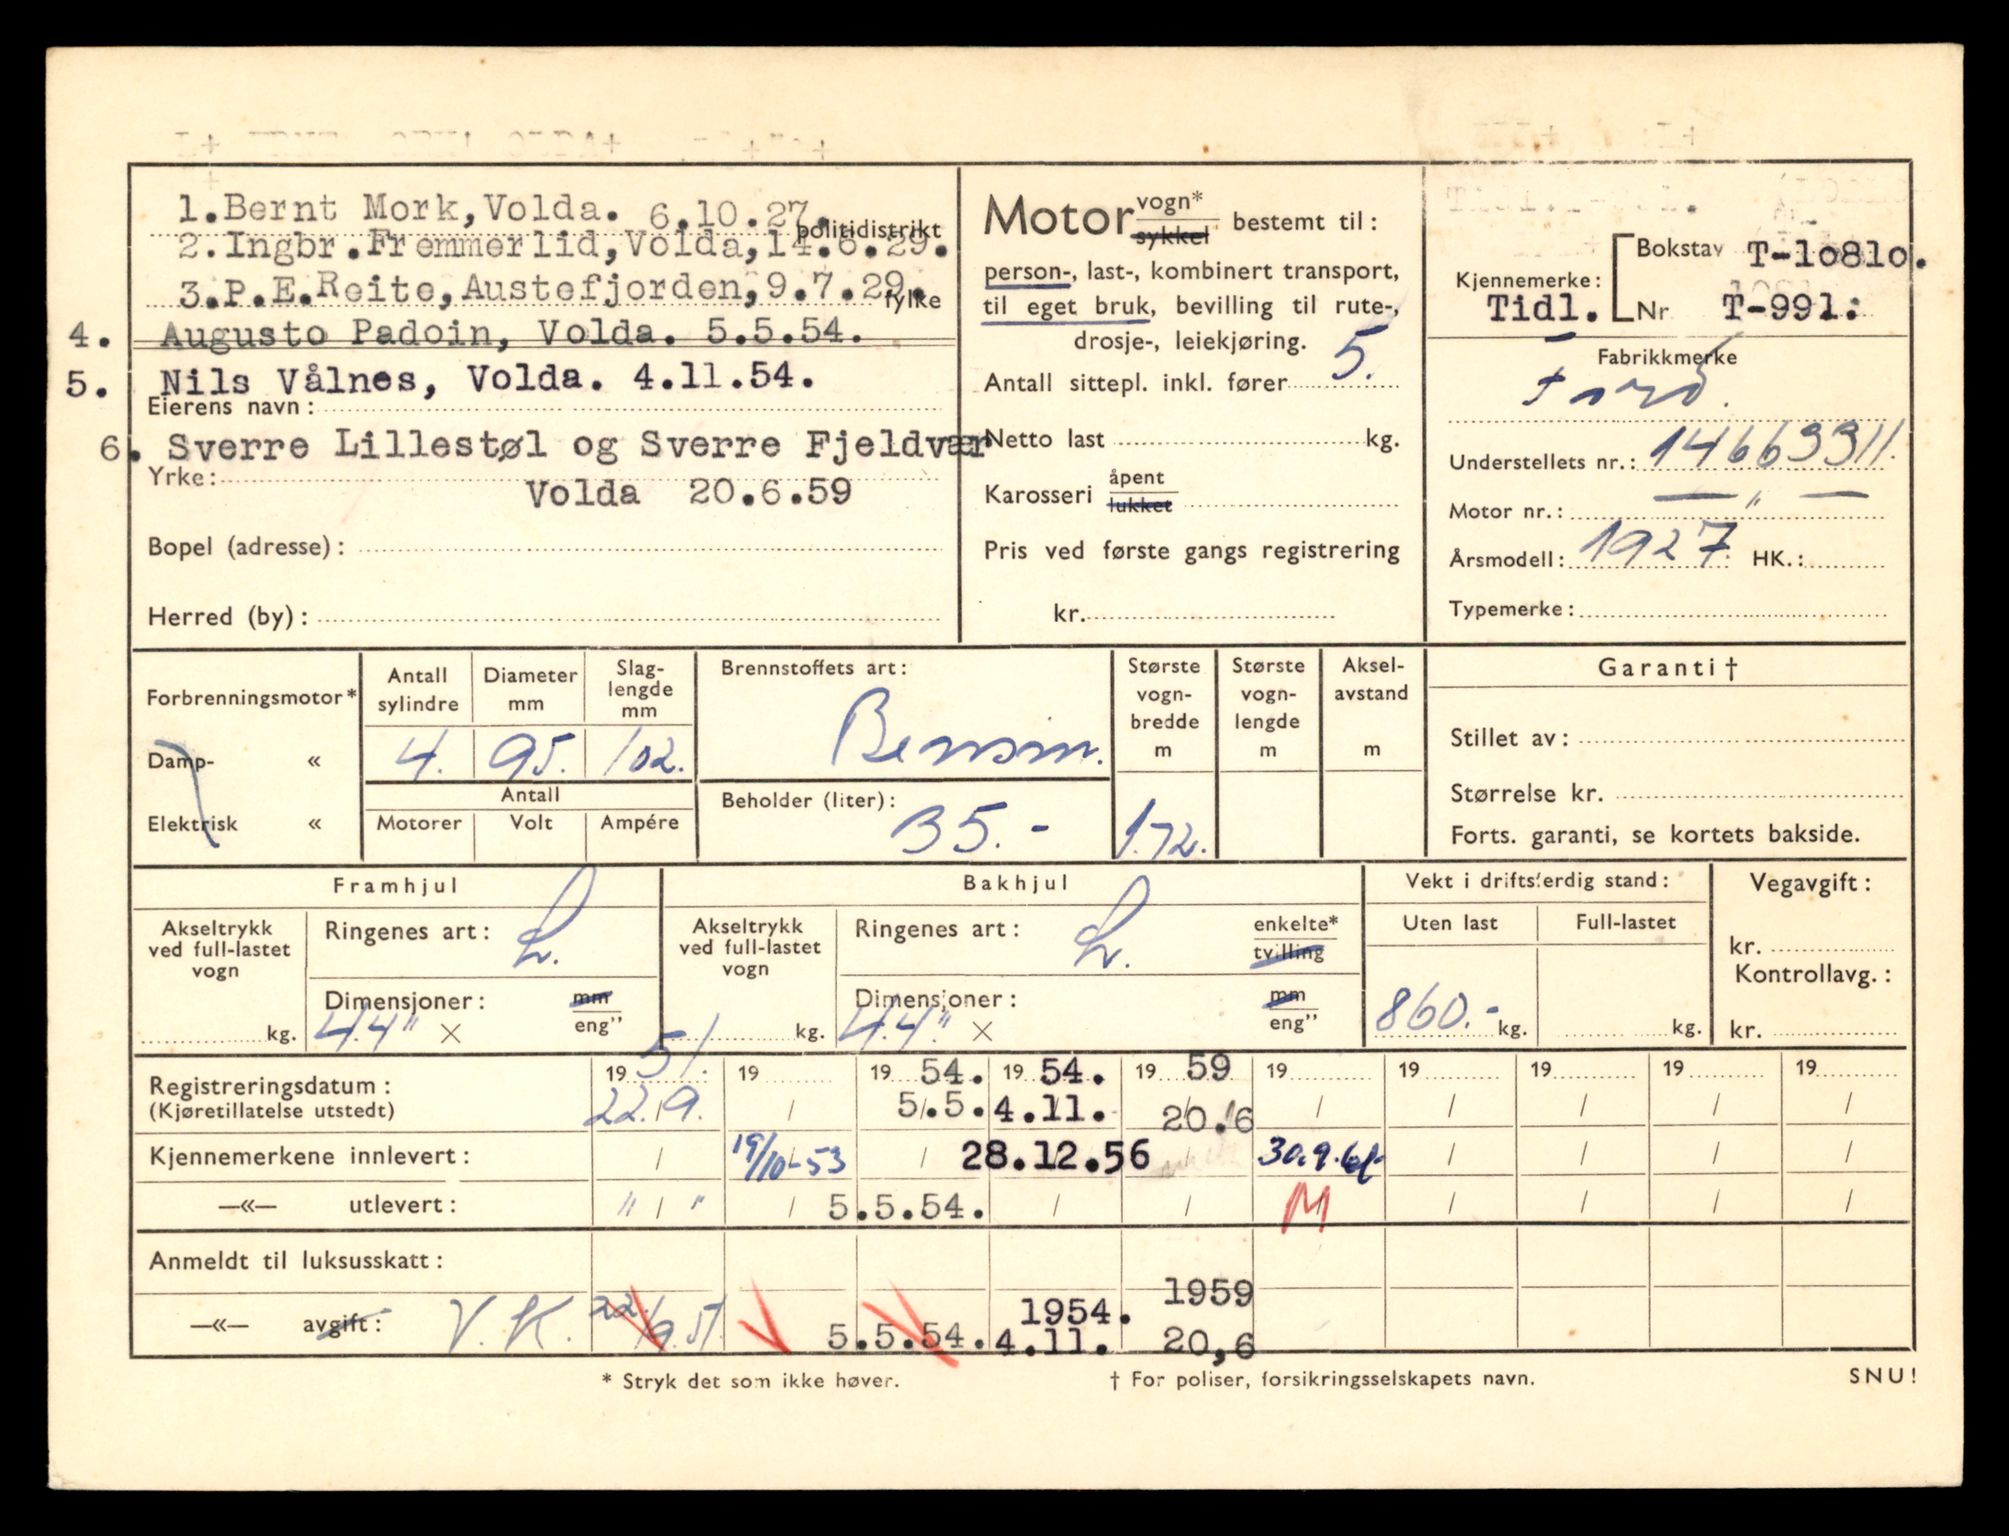 1.Bernt Mork,Volda. 6.10.27.
politidistrikt
2.Ingbr.Fremmerlid,Volda,14.6.29.
3.P.E.Reite,Austefjorden,9.7.29.
fylke
4. Augusto Padoin, Volda. 5.5.54.
5. Nils Vålnes, Volda. 4.11.54.
Eierens navn:
6. Sverre Lillestøl og Sverre Fjeldvær
Yrke:
Volda 20.6.59
Bopel (adresse):
Herred (by):
Motor vogn* sykkel bestemt til:
person-, last-, kombinert transport,
til eget bruk, bevilling til rute-,
drosje-, leiekjøring.
Antall sittepl. inkl. fører 5.
Netto last kg.
Karosseri åpent lukket
Pris ved første gangs registrering
kr.
Kjennemerke:
Bokstav T-10810.
Tidl. Nr T-991:
Fabrikkmerke
Ford.
Understellets nr.: 14663311.
Motor nr.: — " —
Årsmodell: 1927. HK.:
Typemerke:
Forbrenningsmotor*
Damp- «
Elektrisk «
Antall sylindre
Diameter mm
Slag-lengde mm
4. 95. 102.
Antall
Motorer Volt Ampére
Brennstoffets art:
Bensin.
Beholder (liter):
35.-
Største vogn-bredde m
1.72.
Største vogn-lengde m
Aksel-avstand m
Garanti †
Stillet av:
Størrelse kr.
Forts. garanti, se kortets bakside.
Framhjul
Akseltrykk ved full-lastet vogn
kg.
Ringenes art: L.
Dimensjoner: mm
4.4" × eng”
Bakhjul
Akseltrykk ved full-lastet vogn
kg.
Ringenes art: L. enkelte* tvilling
Dimensjoner: mm
4.4." × eng”
Vekt i driftsferdig stand:
Uten last Full-lastet
860.- kg. kg.
Vegavgift:
kr.
Kontrollavg.:
kr.
Registreringsdatum: 19 51. 19 19 54. 19 54. 19 59 19 19 19 19 19
(Kjøretillatelse utstedt) 22./9. / 5./.5. 4.11. 20.6 / / / / /
Kjennemerkene innlevert: / 19/10-53 / 28.12.56 / / / / /
—«— utlevert: " / " / 5.5.54. / / M / / / /
Anmeldt til luksusskatt:
—«— avgift: V.K. 22./9.51. 5.5.54. 1954. 4.11. 1959 20,6
* Stryk det som ikke høver.
† For poliser, forsikringsselskapets navn.
SNU!